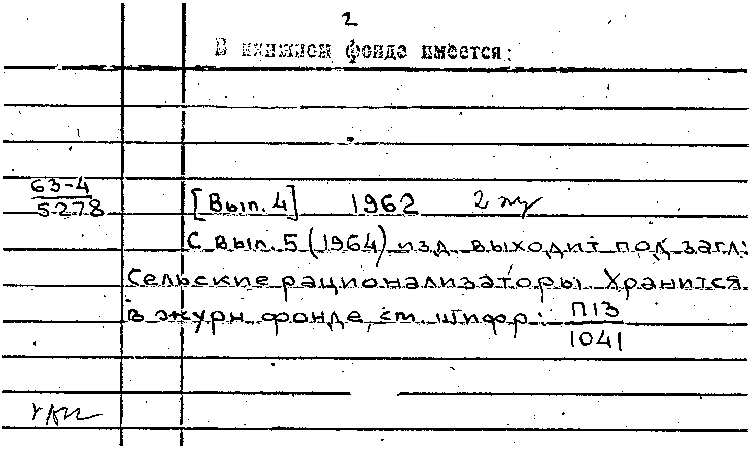 2
В книжном фонде имеется:
63-4
5278
[Вып. 4] 1962 2
С вып. 5 (1964) изд. выходит под загл:
Сельские рационализаторы Хранится
в журн. фонде, см. шифр: П13
1041